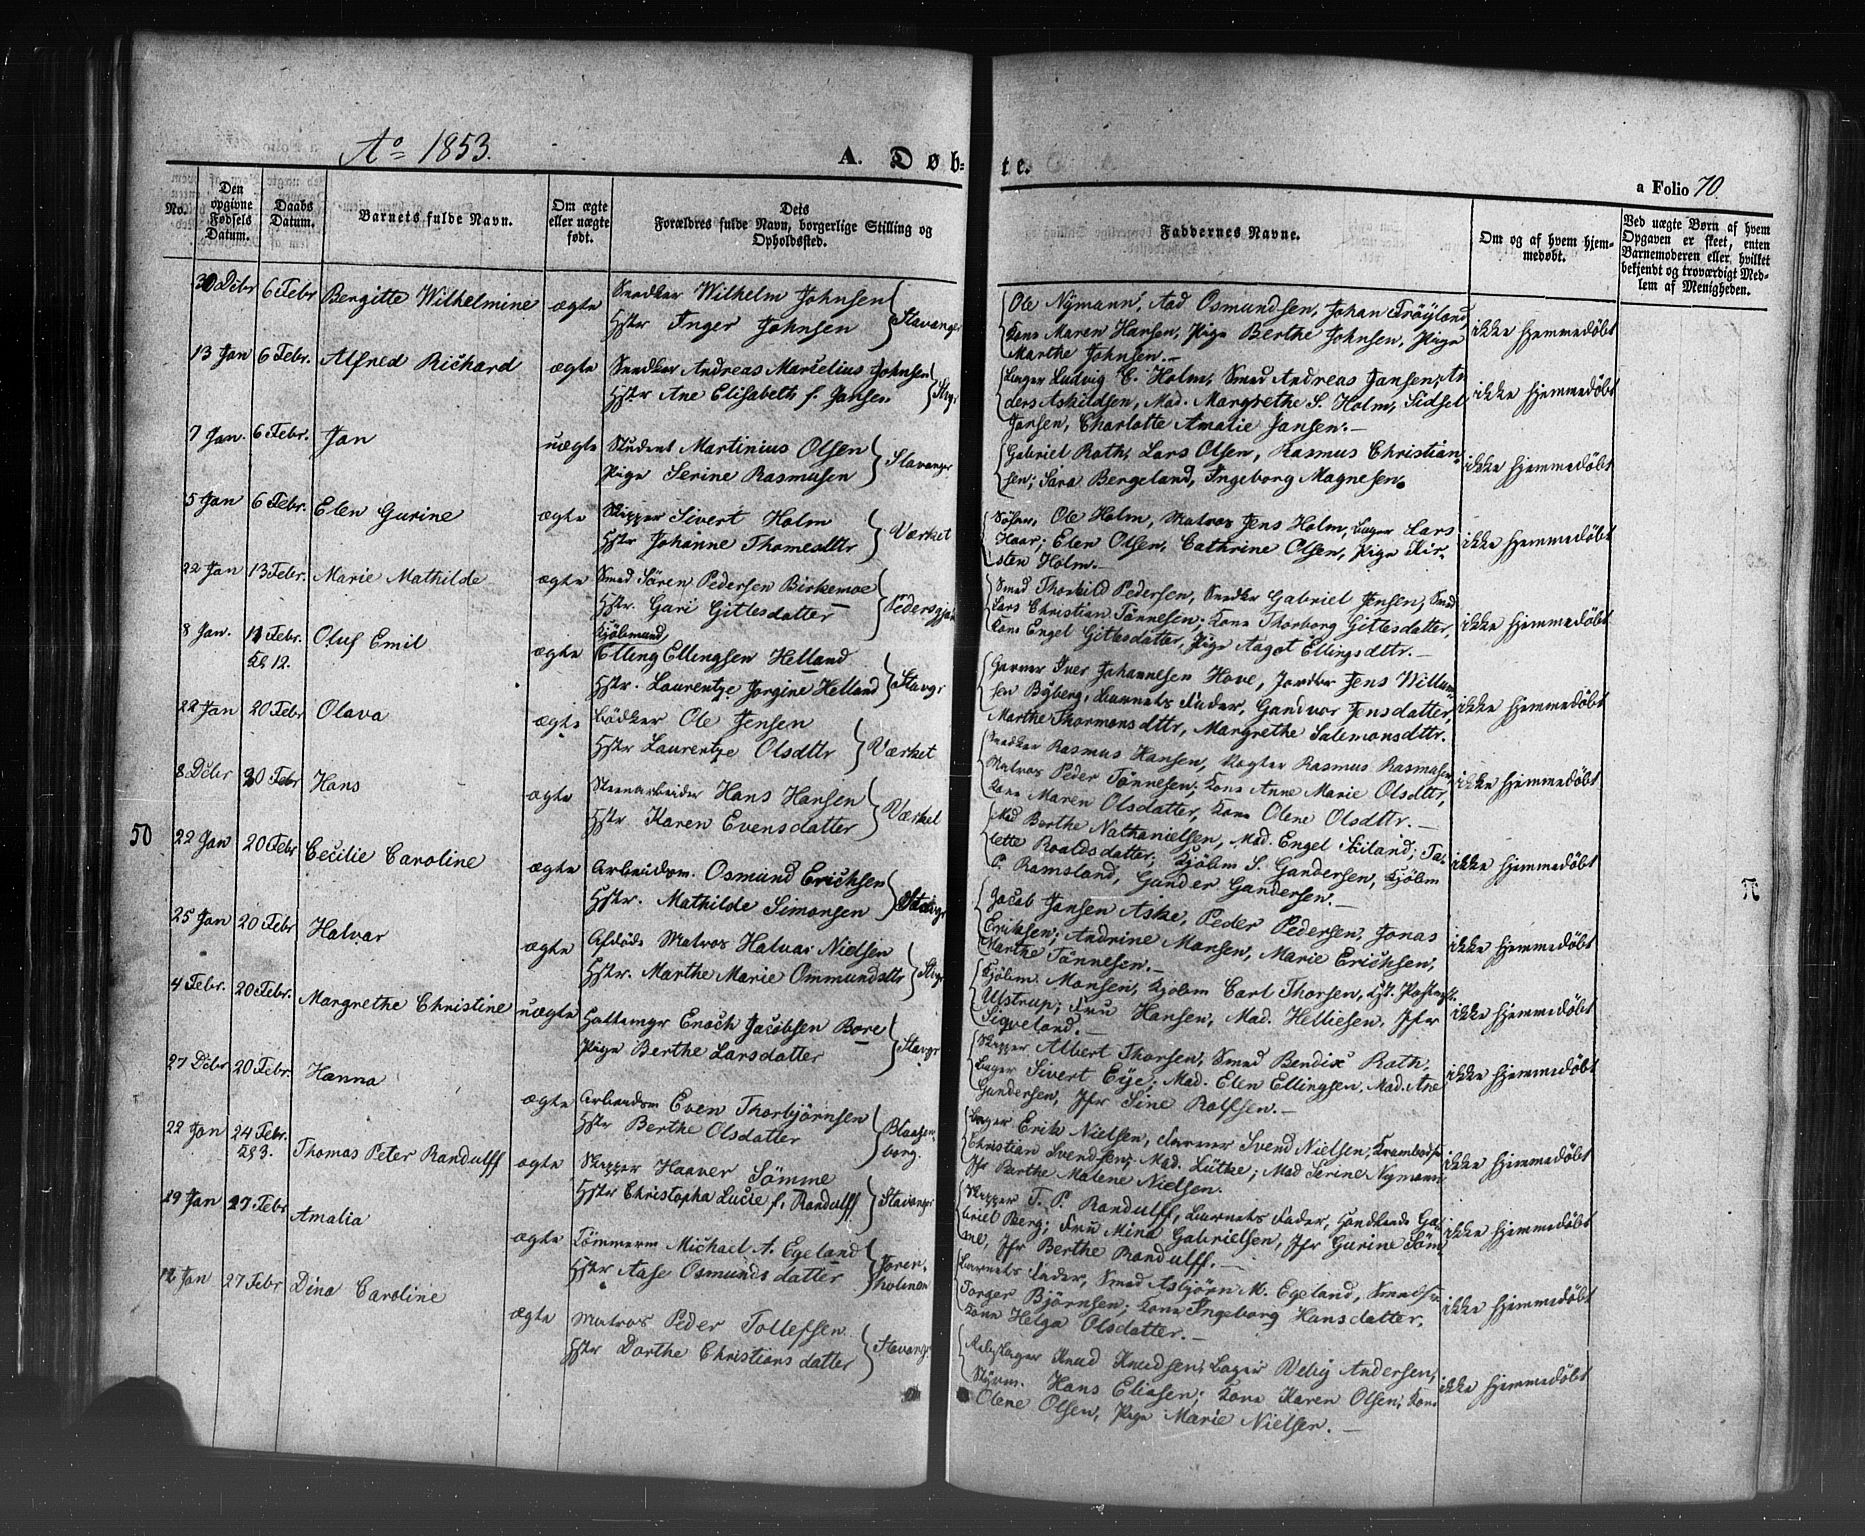 Ao 1853.
A. Døb-
te.
a Folio 70.
No.
Den opgivne Fødsels Datum.
Daabs Datum.
Barnets fulde Navn.
Om ægte eller uægte født.
Dets Forældres fulde Navn, borgerlige Stilling og Opholdssted.
Faddernes Navne.
Om og af hvem hjemmedøbt.
Ved uægte Børn af hvem Opgaven er skeet, enten Barnemoderen eller hvilket bekjendt og troværdigt Medlem af Menigheden.
30 Dcbr 6 Febr Bergitte Wilhelmine ægte Snedker Wilhelm Johnsen
Hstr Inger Johnsen } Stavanger
Ole Nymann, Aad Osmundsen, Johan Fröyland,
Kone Maren Hansen, Pige Berthe Johnsen, Pige
Marthe Johnsen.—
ikke hjemmedøbt
13 Jan 6 Febr. Alfred Richard ægte Snedker Andreas Marselius Johnsen
Hstr Ane Elisabeth f. Jansen } Stvgr
Lager Ludvig C. Holm, Smed Andreas Jansen, An
ders Askildsen, Mad. Margrethe S. Holm, Sidsel
Jansen, Charlotte Amalie Jansen.—
ikke hjemmedøbt
7 Jan. 6 Febr. Jan uægte Student Martinius Olsen
Pige Serine Rasmusen } Stavangr
Gabriel Roth, Lars Olsen, Rasmus Christian-
sen; Sara Bergeland, Ingeborg Magnesen.
ikke hjemmedøbt
5 Jan 6 Febr. Elen Gurine ægte Skipper Sivert Holm
Hstr Johanne Thomesdttr } Værket
Ole Holm, Matros Jens Holm, Lager Lars
Haar; Elen Olsen, Cathrine Olsen, Pige Kir-
sten Holm.—
ikke hjemmedøbt
22 Jan 13 Febr. Marie Mathilde ægte Smed Sören Pedersen Birkemoe
Hstr. Gari Gitlesdatter } Pedersgja
Smed Thorkild Pedersen, Snedker Gabriel Jensen, Smed
Lars Christian Tönnesen; Kone Thorborg Gitlesdatter,
Kone Engel Gitlesdatter, Pige Aagot Ellingsdttr.—
ikke hjemmedøbt
8 Jan. 11 Febr. Oluf Emil ægte Kjöbmand
Elling Ellingsen Helland
Hstr. Laurentze Jorgine Helland } Stavgr
Garver Iver Johannesen Hove, Jordbr Jens Willum-
sen Byberg, Barnets Fader, Gundvor Jensdatter,
Marthe Thormonsdttr, Margrethe Salemonsdttr.
ikke hjemmedøbt
22 Jan 20 Febr Olava ægte Bödker Ole Jensen
Hstr Laurentze Olsdttr } Værket
Snedker Rasmus Hansen, Vægter Rasmus Rasmusen,
Matros Peder Tönnesen; Kone Anne Marie Olsdttr,
Kone Maren Olsdatter, Kone Olene Olsdttr.—
ikke hjemmedøbt
8 Dcbr 20 Febr Hans ægte Steenarbeider Hans Hansen
Hstr. Karen Evensdatter } Værket
Mad Berthe Nathanielsen, Mad. Engel Soiland; Ta-
lette Roaldsdatter; Kjöbm S. Gandersen, Kjöbm
P. Ramsland, Gunder Gandersen.—
ikke hjemmedøbt
50
22 Jan 20 Febr Cecilie Caroline ægte Arbeidsm. Osmund Erichsen
Hstr. Mathilde Simonsen } Stavgr
Jacob Jansen Aske, Peder Pedersen, Jonas
Eriksen; Andrine Monsen, Marie Erichsen,
Marthe Tönnesen.—
ikke hjemmedøbt
25 Jan 20 Febr Halvar ægte Afdöde Matros Halvar Nielsen
Hstr. Marthe Marie Ommundsdttr } Stvgr
Kjöbm. Monsen, Kjöbm Carl Thorsen,
Ulstrup; Fru Hansen, Mad. Helliesen, Jfr
Sigveland.—
ikke hjemmedøbt
4 Febr. 20 Febr. Margrethe Christine uægte Hattemgr Enoch Jacobsen Bore
Pige Berthe Larsdatter } Stavgr
Skipper Albert Thorsen, Smed Bendix Roth,
Lager Sivert Eije; Mad. Elen Ellingsen, Mad. Ane
Gundersen, Jfr Sine Rolfsen.—
ikke hjemmedøbt
27 Dcbr 20 Febr. Hanna ægte Arbeidsm Even Thorbjörnsen
Hstr Berthe Olsdatter } Blaasen-
borg.
Lager Erik Nielsen, Farver Svend Nielsen, Krambodsv
Christian Svendsen; Mad. Lütke; Mad Serine Nymann
Jfr Berthe Malene Nielsen.
ikke hjemmedøbt
22 Jan 24 Febr. Thomas Peter Randulff ægte Skipper Haaver Sömme
Hstr Christopha Lucie f. Randulff } Stavangr
Skipper T. P. Randulff, Barnets Fader, Handlende Ga-
briel Berg; Fru Mina Gabrielsen, Jfr Gurine Söm
me, Jfr Berthe Randulff.—
ikke hjemmedøbt
29 Jan 27 Febr Amalia ægte Tömmerm Michael A. Egeland
Hstr Aase Osmundsdatter } Joren-
holmen
Barnets Fader, Smed Asbjörn M. Egeland,
Torger Björnsen; Kone Ingeborg Hansdatter,
Kone Helga Olsdatter.—
ikke hjemmedøbt
12 Jan 27 Febr Dina Caroline ægte Matros Peder Tollefsen
Hstr Dorthe Christiansdatter } Stavangr.
Rebslager Knud Knudsen, Lager Velig Andersen,
Styrm. Hans Eliasen; Kone Karen Olsen, Kone
Olene Olsen, Pige Marie Nielsen.—
ikke hjemmedøbt